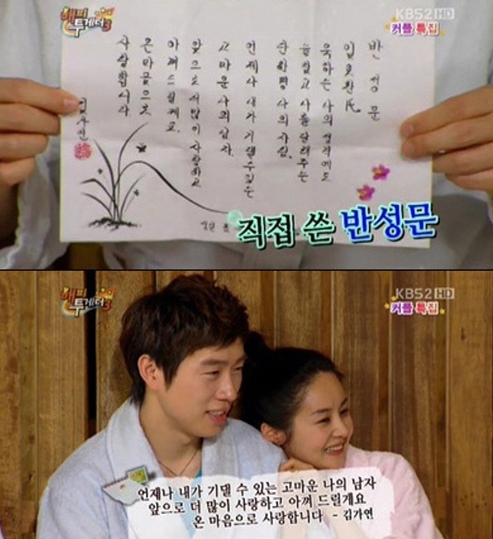 해피투게더3
KBS2 HD
커플 특집
반성문
임요환氏
욱하는 나의 성격에도
나를 달래주는
단 한명 나의 사랑.
언제나 내가 기댈수 있는
고마운 나의 남자.
앞으로 더 많이 사랑하고
아껴드릴게요.
온 마음으로
사랑합니다.
직접 쓴 반성문
해피투게더3
KBS2 HD
커플 특집
언제나 내가 기댈 수 있는 고마운 나의 남자
앞으로 더 많이 사랑하고 아껴 드릴게요
온 마음으로 사랑합니다 - 김가연